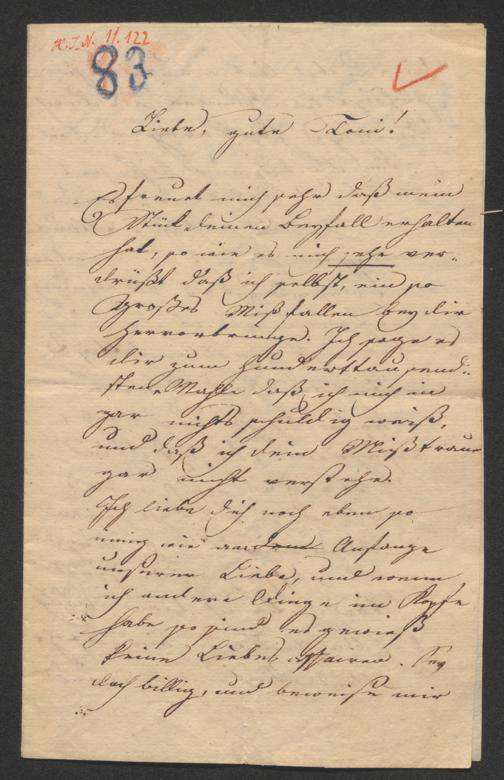 H.I.N. 11.122
83
Liebe, gute Toni!
Es freuet mich sehr daß mein
Stück deinen Beyfall erhalten
hat, so wie es mich sehr ver-
drüßt daß ich selbst, ein so
großes Mißfallen bey dir
hervorbringe. Ich sage es
dir zum hunderttausend-
sten Mahle daß ich mich in
gar nichts schuldig weiß,
und daß ich dein Mißtraun
gar nicht verstehe.
Ich liebe dich noch eben so
innig wie am Anfange
unserer Liebe, und wenn
ich andere Dinge im Kopfe
habe so sind es gewieß
keine Liebes affairen. Sey
doch billig, und beweise mir